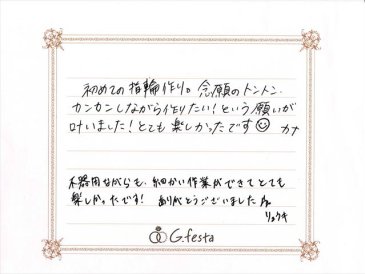 初めての指輪作り。念願のトントン、
カンカンしながら作りたい！という願いが
叶いました！とても楽しかったです☺ カナ
不器用ながらも、細かい作業ができてとても
楽しかったです！ ありがとうございました
リョウキ
G.festa